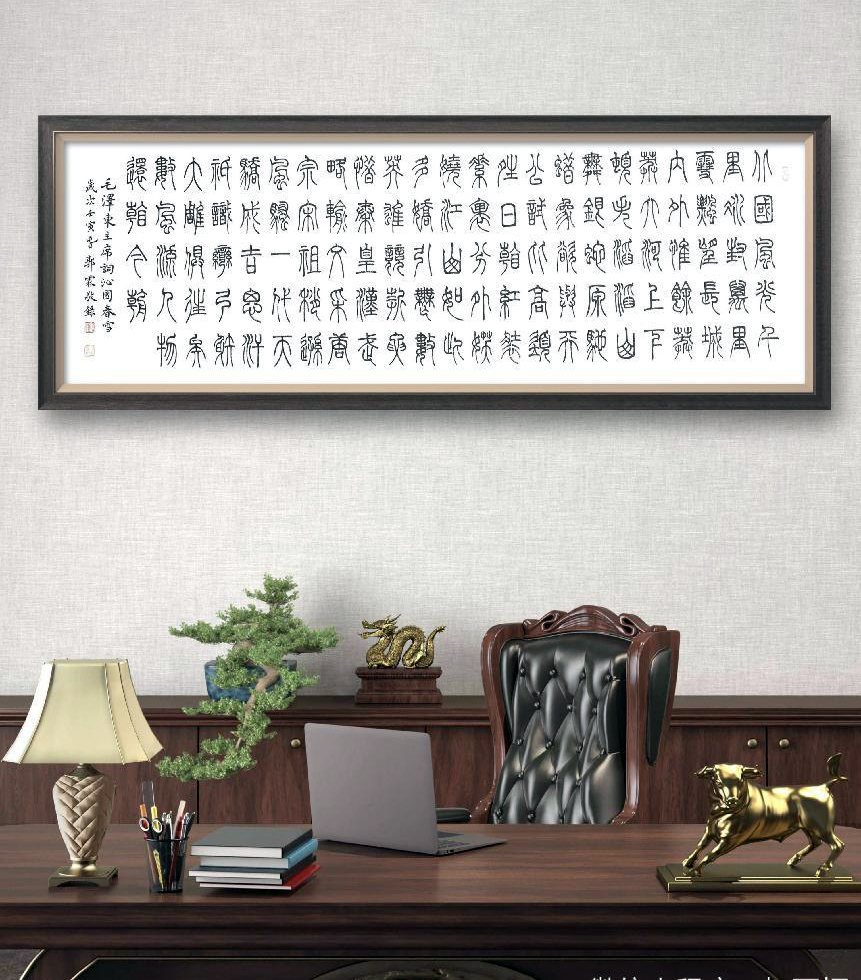 北國風光千
里冰封萬里
雪飄望長城
內外惟餘莽
莽大河上下
頓失滔滔山
舞銀蛇原馳
蠟象欲與天
公試比高須
晴日看紅裝
素裹分外妖
嬈江山如此
多嬌引無數
英雄競折腰
惜秦皇漢武
略輸文采唐
宗宋祖稍遜
風騷一代天
驕成吉思汗
祗識彎弓射
大雕俱往矣
數風流人物
還看今朝
毛澤東主席詞沁園春雪
歲次壬寅 敬錄